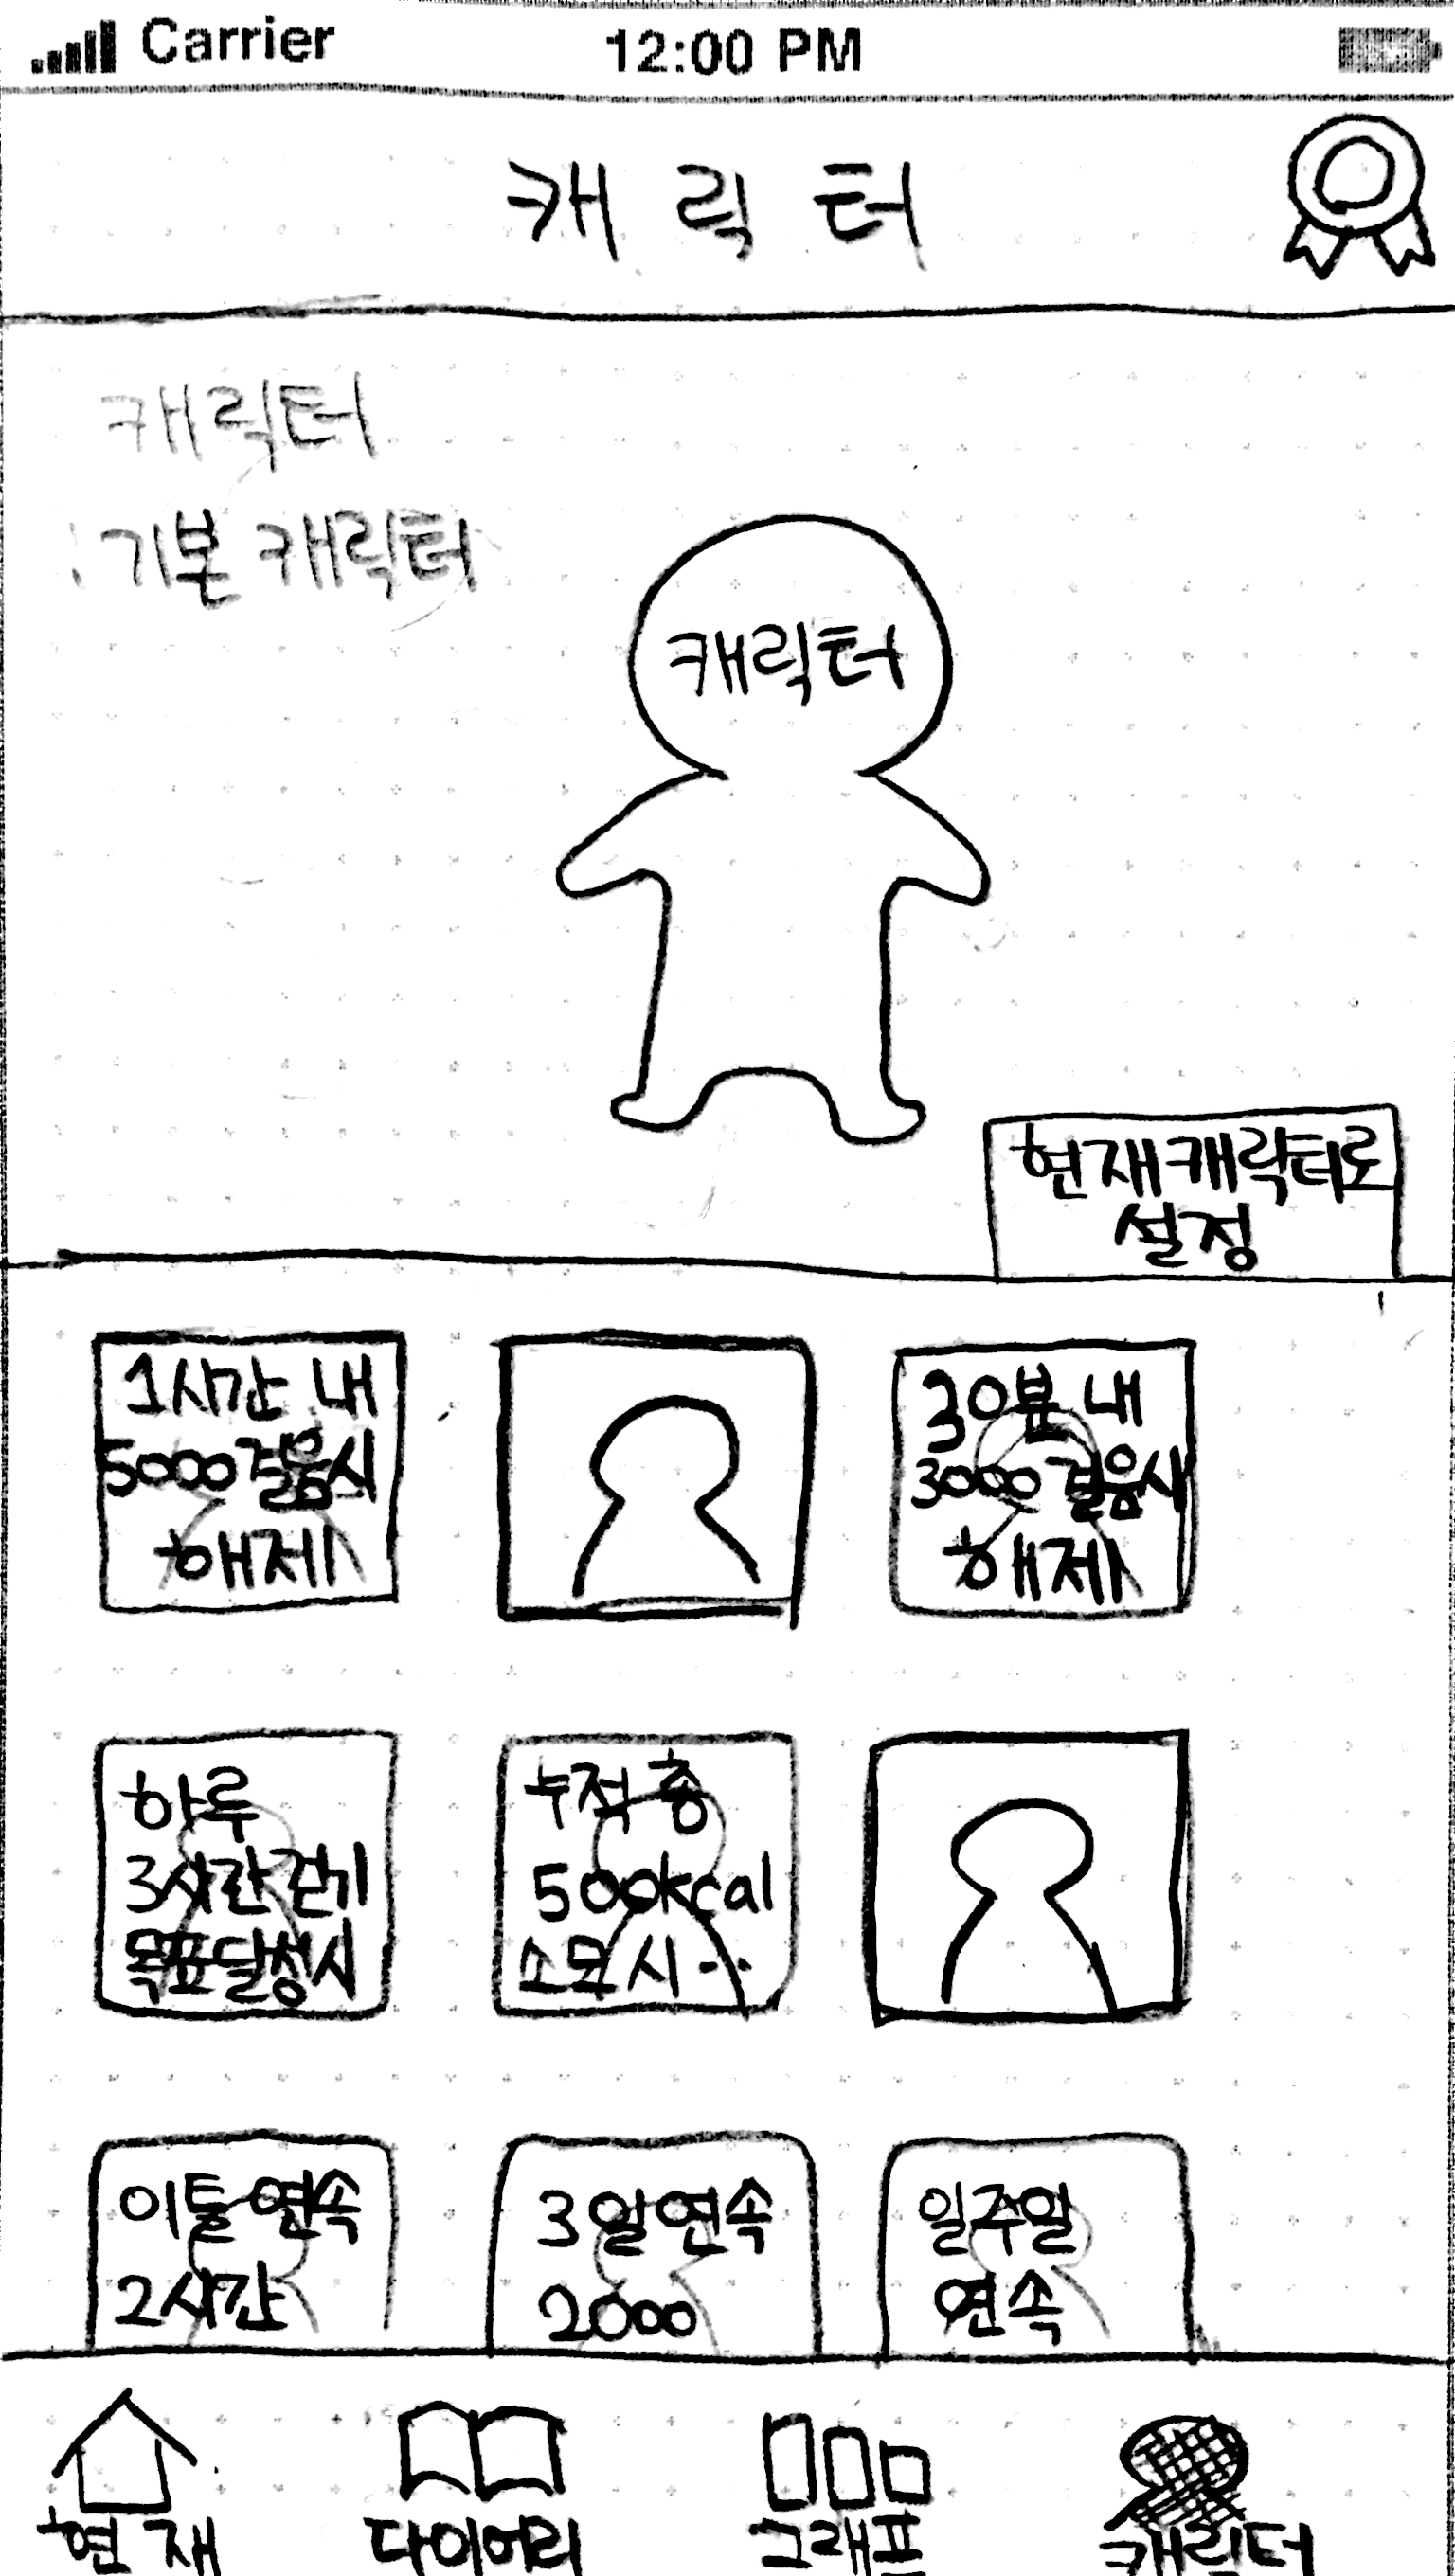 Carrier 12:00 PM
캐릭터
캐릭터
기본 캐릭터
캐릭터
현재캐릭터로
설정
1시간 내
5000걸음시
해제
30분 내
3000걸음시
해제
하루
3시간걷기
목표달성시
누적 총
500kcal
소모시..
이틀연속
2시간
3일연속
2000
일주일
연속
현재
다이어리
그래프
캐릭터